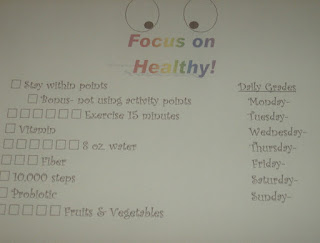 Focus on
Healthy!
Stay within points
Bonus- not using activity points
Exercise 15 minutes
Vitamin
8 oz. water
Fiber
10,000 steps
Probiotic
Fruits & Vegetables
Daily Grades
Monday-
Tuesday-
Wednesday-
Thursday-
Friday-
Saturday-
Sunday-